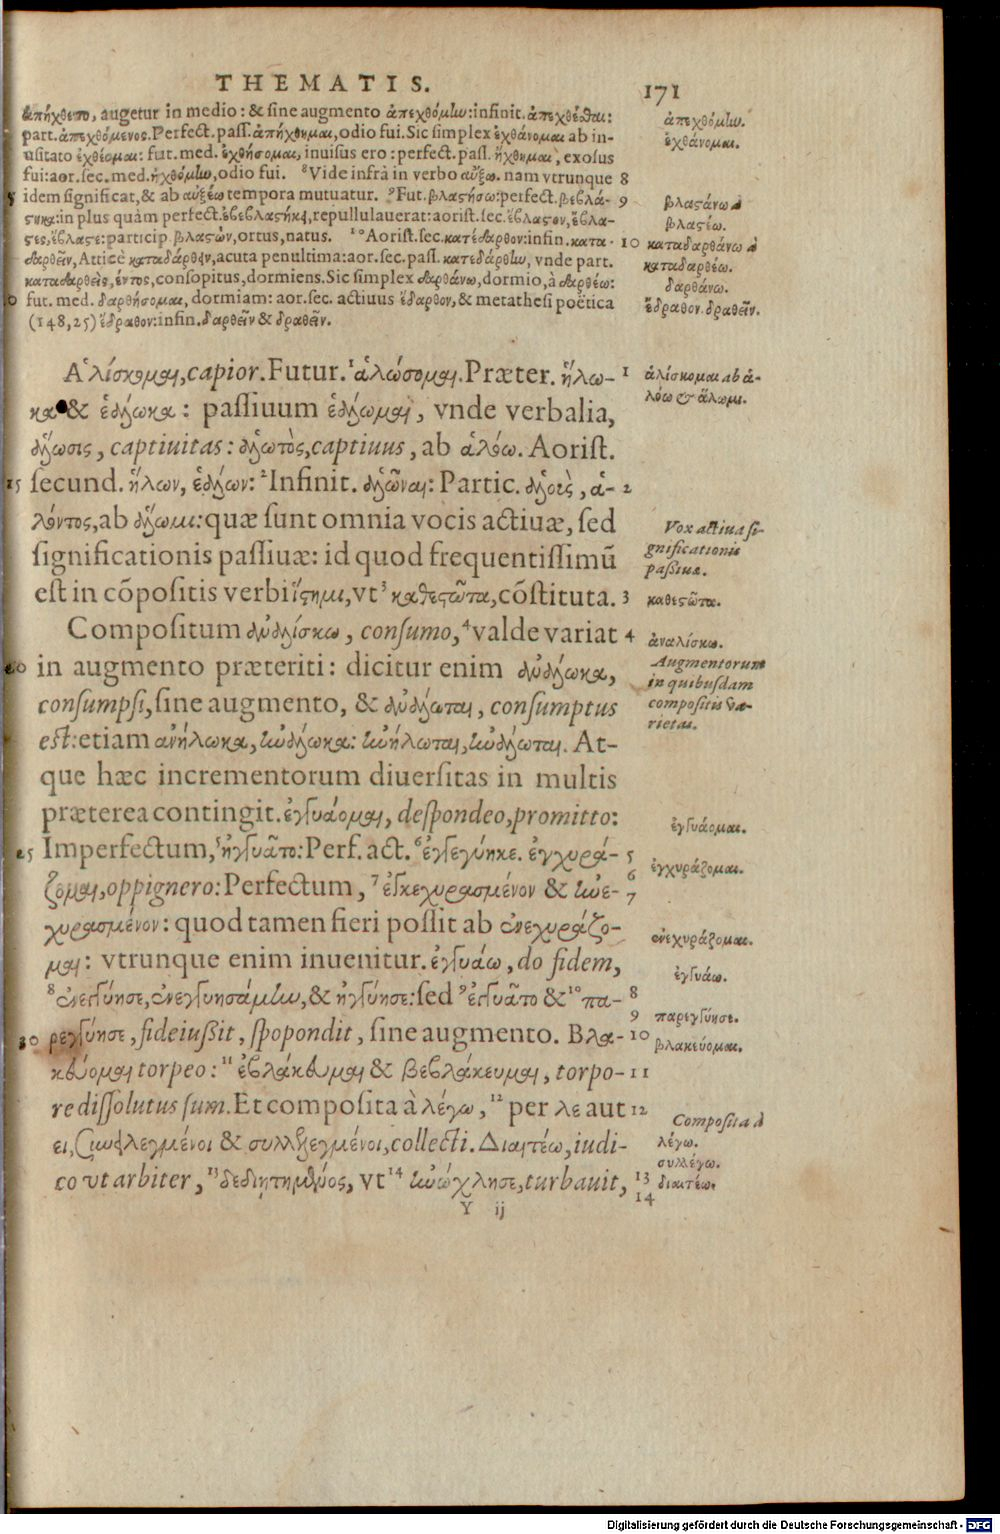 THEMATIS. 171
ἀπήχθετο, augetur in medio: & sine augmento ἀπεχθόμην: infinit. ἀπεχθέσθαι:
part. ἀπεχθόμενος. Perfect. pass. ἀπήχθημαι, odio fui. Sic simplex ἐχθάνομαι ab in-
usitato ἐχθέομαι: fut. med. ἐχθήσομαι, inuisus ero: perfect. pass. ἤχθημαι, exosus
fui: aor. sec. med. ἠχθόμην, odio fui. ⁸Vide infrà in verbo αὔξω. nam vtrunque 8
5 idem significat, & ab αὐξέω tempora mutuatur. ⁹Fut. βλαστήσω: perfect. βεβλά- 9
στηκα: in plus quàm perfect. ἐβεβλαστήκει, repullulauerat: aorist. sec. ἔβλαστον, ἔβλα-
στες, ἔβλαστε: particip. βλαστὼν, ortus, natus. ¹⁰Aorist. sec. κατέδαρθον: infin. κατα- 10
δαρθεῖν, Atticè καταδάρθειν, acuta penultima: aor. sec. pass. κατεδάρθην, vnde part.
καταδαρθεὶς, έντος, consopitus, dormiens. Sic simplex δαρθάνω, dormio, à δαρθέω:
fut. med. δαρθήσομαι, dormiam: aor. sec. actiuus ἔδαρθον, & metathesi poëtica
(148,25) ἔδραθον: infin. δαρθεῖν & δραθεῖν.
ἀπεχθόμην.
ἐχθάνομαι.
βλαστάνω à
βλαστέω.
καταδαρθάνω à
καταδαρθέω.
δαρθάνω.
ἔδραθον. δραθεῖν.
Ἁλίσκομαι, capior. Futur. ¹ἁλώσομαι. Præter. ἥλω- 1
κα & ἑάλωκα: passiuum ἑάλωμαι, vnde verbalia,
ἅλωσις, captiuitas: ἁλωτὸς, captiuus, ab ἁλόω. Aorist.
15 secund. ἥλων, ἑάλων: ²Infinit. ἁλῶναι: Partic. ἁλοὺς, ἁ- 2
λόντος, ab ἅλωμι: quæ sunt omnia vocis actiuæ, sed
significationis passiuæ: id quod frequentissimũ
est in cõpositis verbi ἵστημι, vt ³καθεστῶτα, cõstituta. 3
Compositum ἀναλίσκω, consumo, ⁴valde variat 4
20 in augmento præteriti: dicitur enim ἀνάλωκα,
consumpsi, sine augmento, & ἀνάλωται, consumptus
est: etiam ἀνήλωκα, ἠνάλωκα: ἠνήλωται, ἠνάλωται. At-
que hæc incrementorum diuersitas in multis
præterea contingit. ἐγγυάομαι, despondeo, promitto:
25 Imperfectum, ⁵ἠγγυᾶτο: Perf. act. ⁶ἐγγεγύηκε. ἐγχυρά- 5
ζομαι, oppignero: Perfectum, ⁷ἐγκεχυρασμένον & ἠνε- 6 7
χυρασμένον: quod tamen fieri possit ab ἐνεχυράζο-
μαι: vtrunque enim inuenitur. ἐγγυάω, do fidem,
⁸ἐνεγγύησε, ἐνεγγυησάμην, & ἠγγύησε: sed ⁹ἐγγυᾶτο & ¹⁰πα- 8 9
30 ρεγγύησε, fideiußit, spopondit, sine augmento. Βλα- 10
κεύομαι torpeo: ¹¹ἐβλάκευμαι & βεβλάκευμαι, torpo- 11
re dissolutus sum. Et composita à λέγω, ¹²per λε aut 12
ει, συνειλεγμένοι & συλλελεγμένοι, collecti. Διαιτέω, iudi-
co vt arbiter, ¹³δεδιῃτημένος, vt ¹⁴ἠνώχλησε, turbauit, 13 14
ἁλίσκομαι ab ἁ-
λόω & ἅλωμι.
Vox actiua si-
gnificationis
passiuæ.
καθεστῶτα.
ἀναλίσκω.
Augmentorum
in quibusdam
compositis va-
rietas.
ἐγγυάομαι.
ἐγχυράζομαι.
ἐνεχυράζομαι.
ἐγγυάω.
παρεγγύησε.
βλακεύομαι.
Composita à
λέγω.
συλλέγω.
διαιτέω.
Y ij
Digitalisierung gefördert durch die Deutsche Forschungsgemeinschaft - DFG